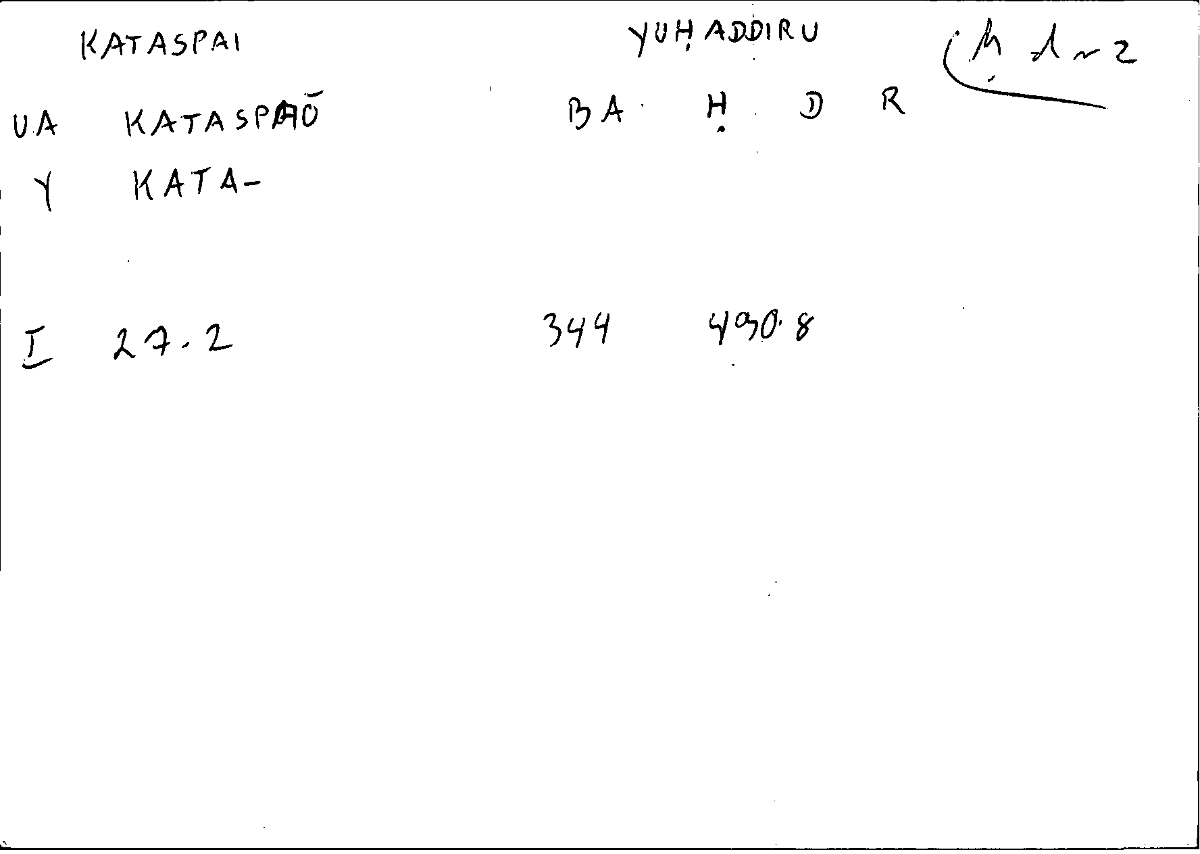 KATASPAI YUḤADDIRU ḥ d r 2
UA KATASPAŌ BA Ḥ D R
Y KATA-
I 27.2 344 490.8